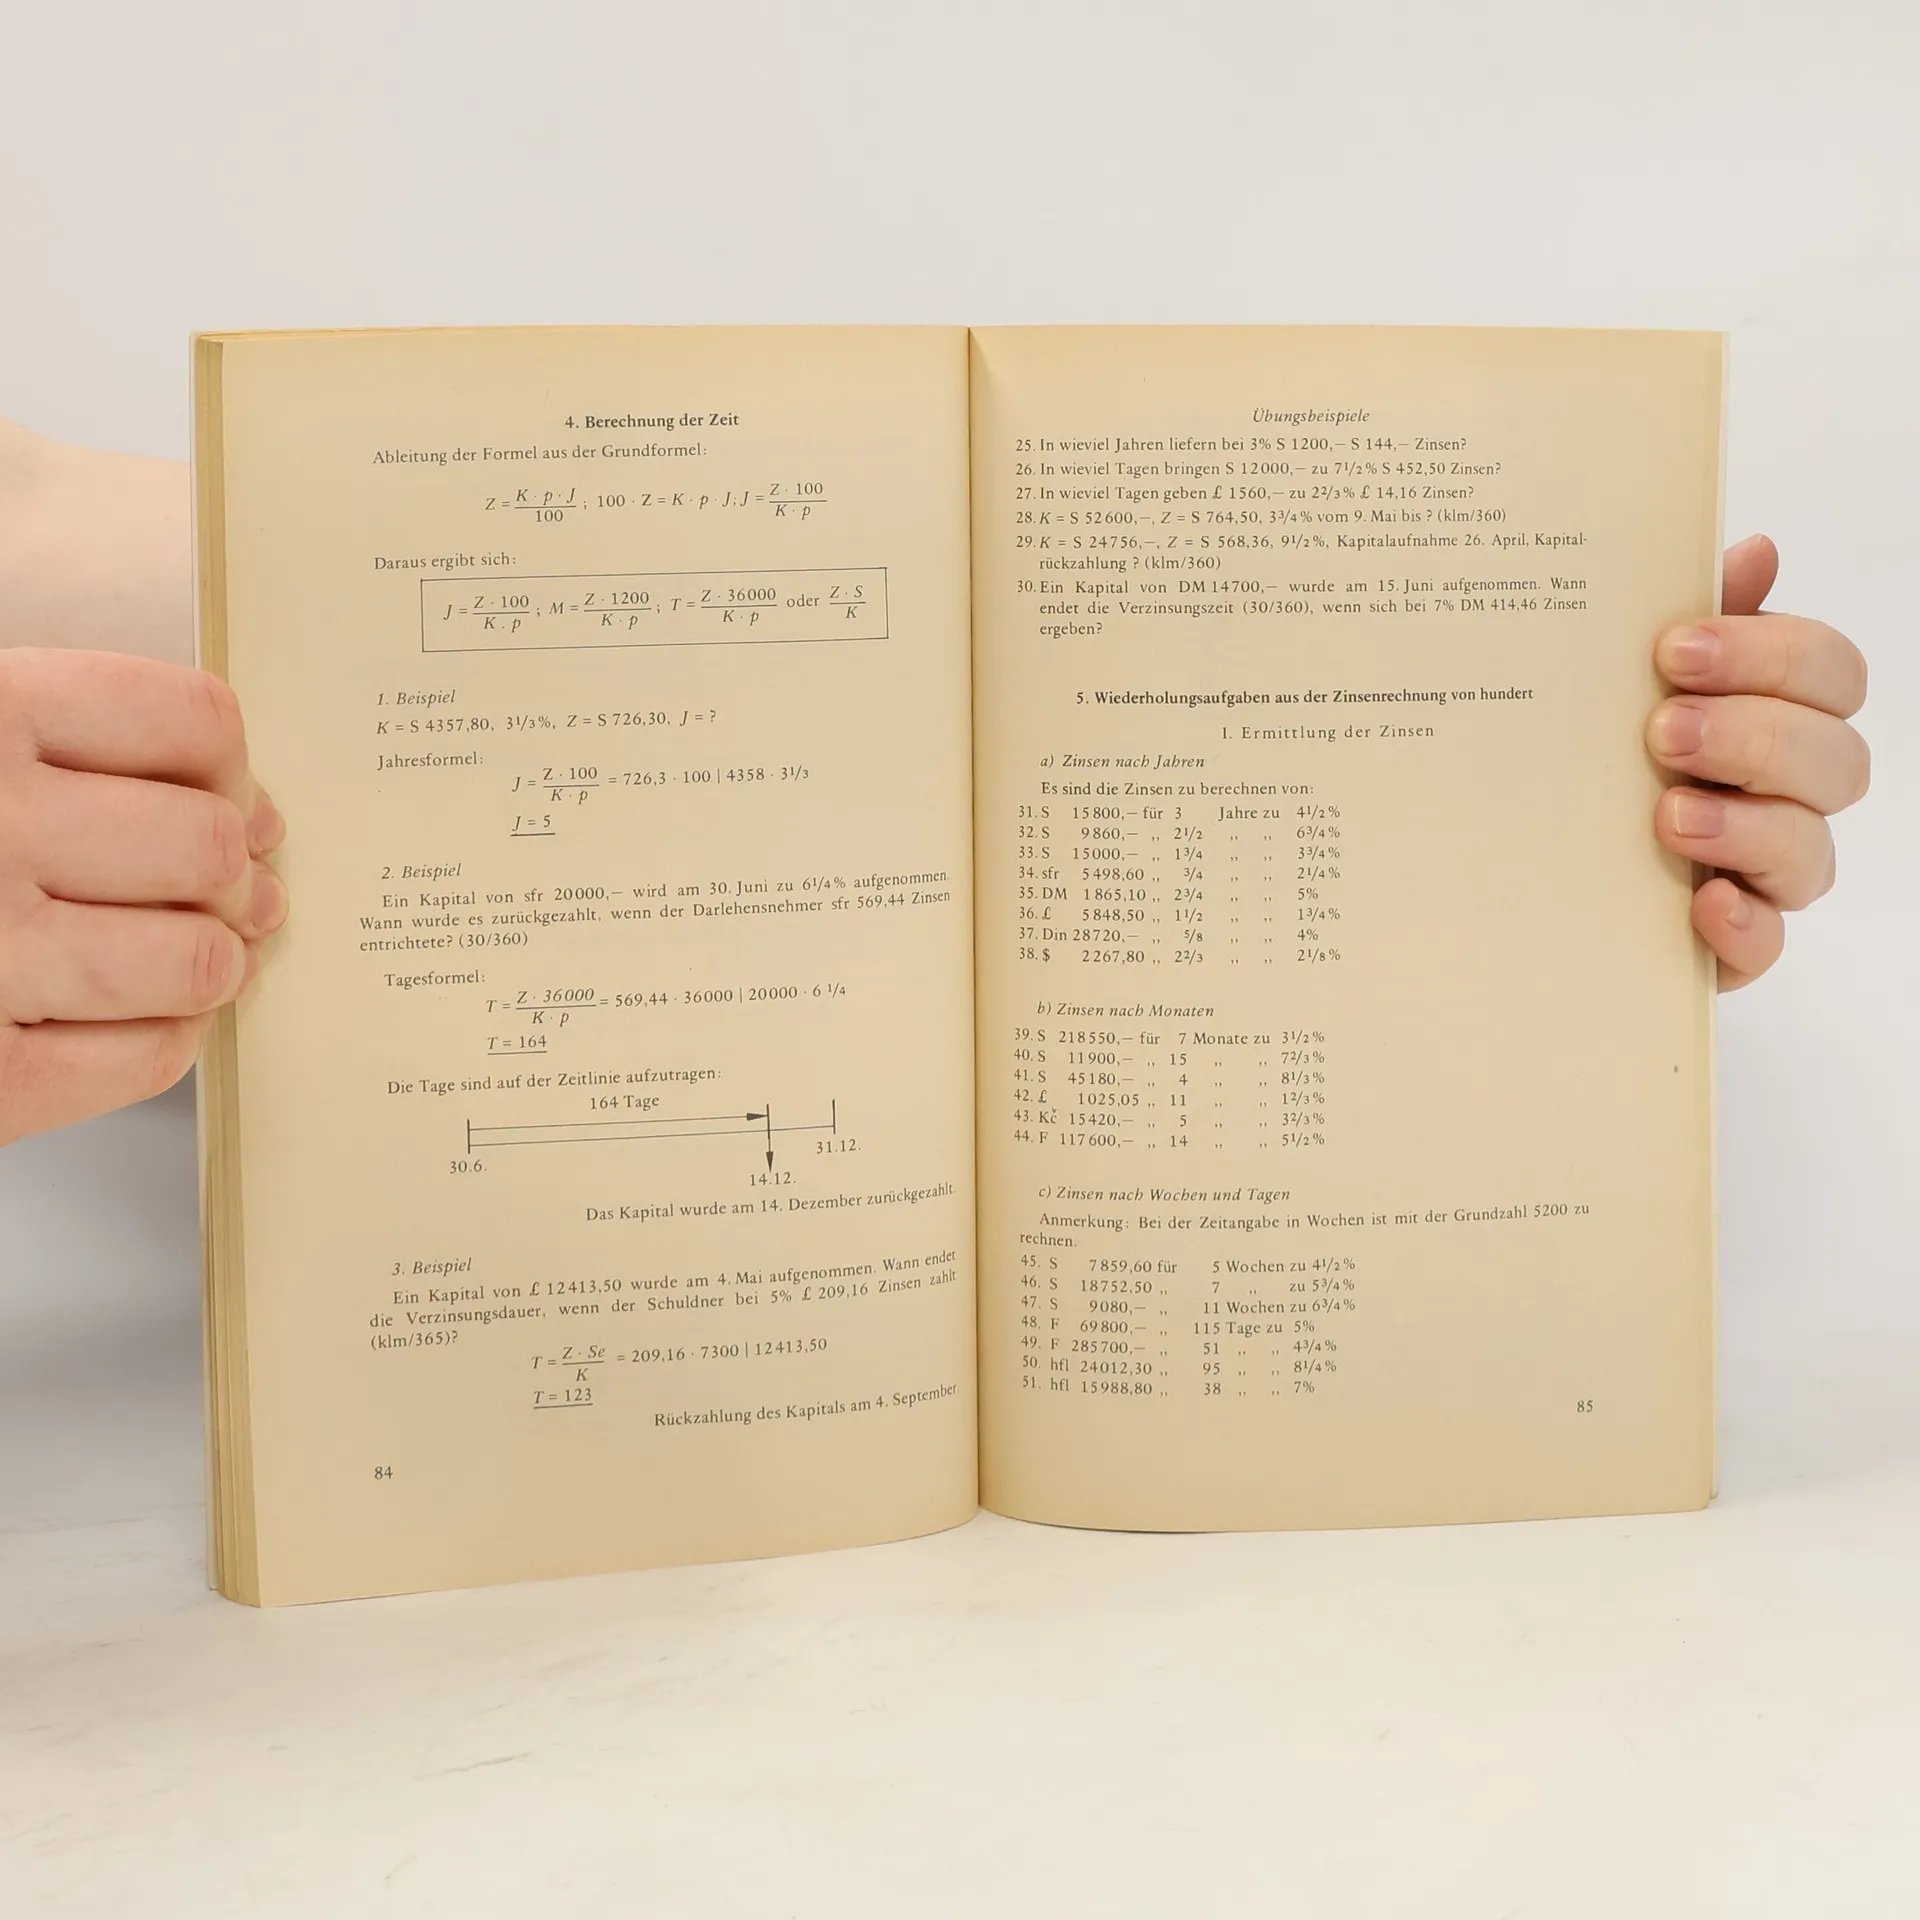 4. Berechnung der Zeit
Ableitung der Formel aus der Grundformel:
Z = K · p · J / 100 ; 100 · Z = K · p · J; J = Z · 100 / K · p
Daraus ergibt sich:
J = Z · 100 / K · p ; M = Z · 1200 / K · p ; T = Z · 36000 / K · p oder Z · S / K
1. Beispiel
K = S 4357,80, 3 1/3%, Z = S 726,30, J = ?
Jahresformel:
J = Z · 100 / K · p = 726,3 · 100 | 4358 · 3 1/3
J = 5
2. Beispiel
Ein Kapital von sfr 20000,— wird am 30. Juni zu 6 1/4% aufgenommen.
Wann wurde es zurückgezahlt, wenn der Darlehensnehmer sfr 569,44 Zinsen
entrichtete? (30/360)
Tagesformel:
T = Z · 36000 / K · p = 569,44 · 36000 | 20000 · 6 1/4
T = 164
Die Tage sind auf der Zeitlinie aufzutragen:
164 Tage
30.6.
14.12.
31.12.
Das Kapital wurde am 14. Dezember zurückgezahlt.
3. Beispiel
Ein Kapital von £ 12413,50 wurde am 4. Mai aufgenommen. Wann endet
die Verzinsungsdauer, wenn der Schuldner bei 5% £ 209,16 Zinsen zahlt
(klm/365)?
T = Z · Se / K = 209,16 · 7300 | 12413,50
T = 123
Rückzahlung des Kapitals am 4. September.
84
Übungsbeispiele
25. In wieviel Jahren liefern bei 3% S 1200,— S 144,— Zinsen?
26. In wieviel Tagen bringen S 12000,— zu 7 1/2% S 452,50 Zinsen?
27. In wieviel Tagen geben £ 1560,— zu 2 2/3% £ 14,16 Zinsen?
28. K = S 52600,—, Z = S 764,50, 3 3/4% vom 9. Mai bis ? (klm/360)
29. K = S 24756,—, Z = S 568,36, 9 1/2%, Kapitalaufnahme 26. April, Kapital-
rückzahlung ? (klm/360)
30. Ein Kapital von DM 14700,— wurde am 15. Juni aufgenommen. Wann
endet die Verzinsungszeit (30/360), wenn sich bei 7% DM 414,46 Zinsen
ergeben?
5. Wiederholungsaufgaben aus der Zinsenrechnung von hundert
I. Ermittlung der Zinsen
a) Zinsen nach Jahren
Es sind die Zinsen zu berechnen von:
31. S 15800,— für 3 Jahre zu 4 1/2%
32. S 9860,— „ 2 1/2 „ „ 6 3/4%
33. S 15000,— „ 1 3/4 „ „ 3 3/4%
34. sfr 5498,60 „ 3/4 „ „ 2 1/4%
35. DM 1865,10 „ 2 3/4 „ „ 5%
36. £ 5848,50 „ 1 1/2 „ „ 1 3/4%
37. Din 28720,— „ 5/8 „ „ 4%
38. $ 2267,80 „ 2 2/3 „ „ 2 1/8%
b) Zinsen nach Monaten
39. S 218550,— für 7 Monate zu 3 1/2%
40. S 11900,— „ 15 „ „ 7 2/3%
41. S 45180,— „ 4 „ „ 8 1/3%
42. £ 1025,05 „ 11 „ „ 1 2/3%
43. Kč 15420,— „ 5 „ „ 3 2/3%
44. F 117600,— „ 14 „ „ 5 1/2%
c) Zinsen nach Wochen und Tagen
Anmerkung: Bei der Zeitangabe in Wochen ist mit der Grundzahl 5200 zu
rechnen.
45. S 7859,60 für 5 Wochen zu 4 1/2%
46. S 18752,50 „ 7 „ zu 5 3/4%
47. S 9080,— „ 11 Wochen zu 6 3/4%
48. F 69800,— „ 115 Tage zu 5%
49. F 285700,— „ 51 „ „ 4 3/4%
50. hfl 24012,30 „ 95 „ „ 8 1/4%
51. hfl 15988,80 „ 38 „ „ 7%
85